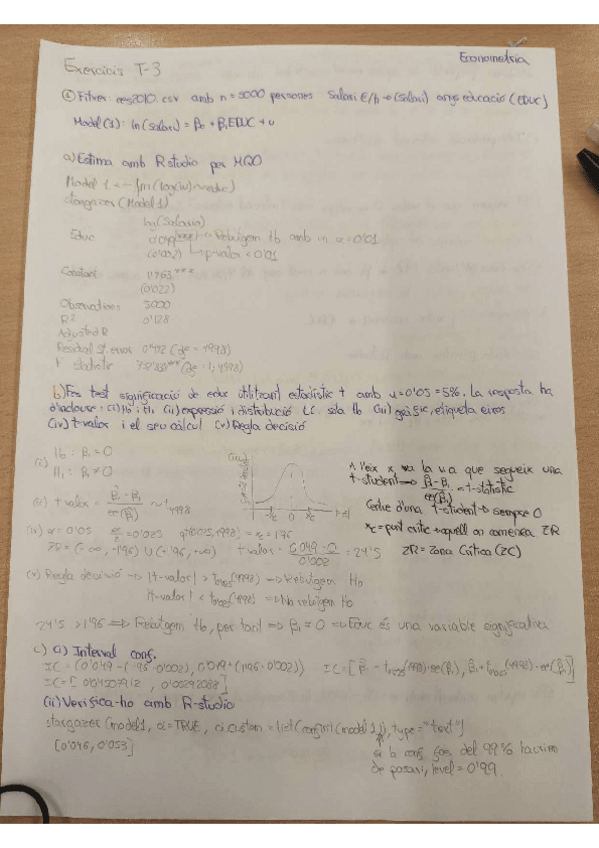 Econometria
Exercicis T-3
Fitxer: ees2010.csv amb n=5000 persones Salari E/h → (Salari) anys educació (EDUC)
Model (1): ln(salari) = β₀ + β₁EDUC + u
a) Estima amb R studio per MQO
Model 1 <- lm(log(w)~educ)
stargazer (Model 1)
log(Salario)
Educ 0'049*** → Rebutgem H₀ amb α = 0'01
(0'002) → p-valor < 0'01
Constant 1'763***
(0'022)
Observations 5000
R² 0'128
Adjusted R
Residual St. error (df = 4998)
F statistic (df = 1; 4998)
b) Fes test significació de educ utilitzant estadístic t amb α=0'05=5%. La resposta ha
d'incloure: (i) H₀ i H₁ (ii) expressió i distribució sota H₀ (iii) gràfic, etiqueta eixos
(iv) t-valor i el seu càlcul (v) Regla decisió
(i) H₀: β₁ = 0
H₁: β₁ ≠ 0
(iii)
A l'eix x va la v.a que segueix una
t-student → = t-statistic
Centre d'una t-student → sempre 0
xc = punt crític → aquell on comença ZR
ZR = Zona Crítica (ZC)
(ii) t valor = β̂₁ - β₁ / se(β̂₁) ~ t 4998
(iv) α = 0'05 α/2 = 0'025 qt(0'025, 4998) = xc = 1'96
ZR = (-∞, -1'96) ∪ (+1'96, +∞) t-valor = 0'049 - 0 / 0'002 = 24'5
(v) Regla decisió → |t-valor| > (4998) → Rebutgem H₀
|t-valor| < (4998) → No rebutgem H₀
24'5 > 1'96 ⟹ Rebutgem H₀, per tant → β₁ = 0 → Educ és una variable significativa
c) a) Interval conf.
IC = (0'049 - (1'96·0'002), 0'049 + (1'96·0'002)) IC = [β̂₁ - (4998)·se(β̂₁), β̂₁ + (4998)·se(β̂₁)]
IC = [0'04507912, 0'05292088]
(ii) Verifica-ho amb R-studio
stargazer (model1, ci=TRUE, ci.custom = list(confint(model1)), type="text")
[0'046, 0'053]
si la conf. fos del 99% hauríem
de posar , level = 0'99